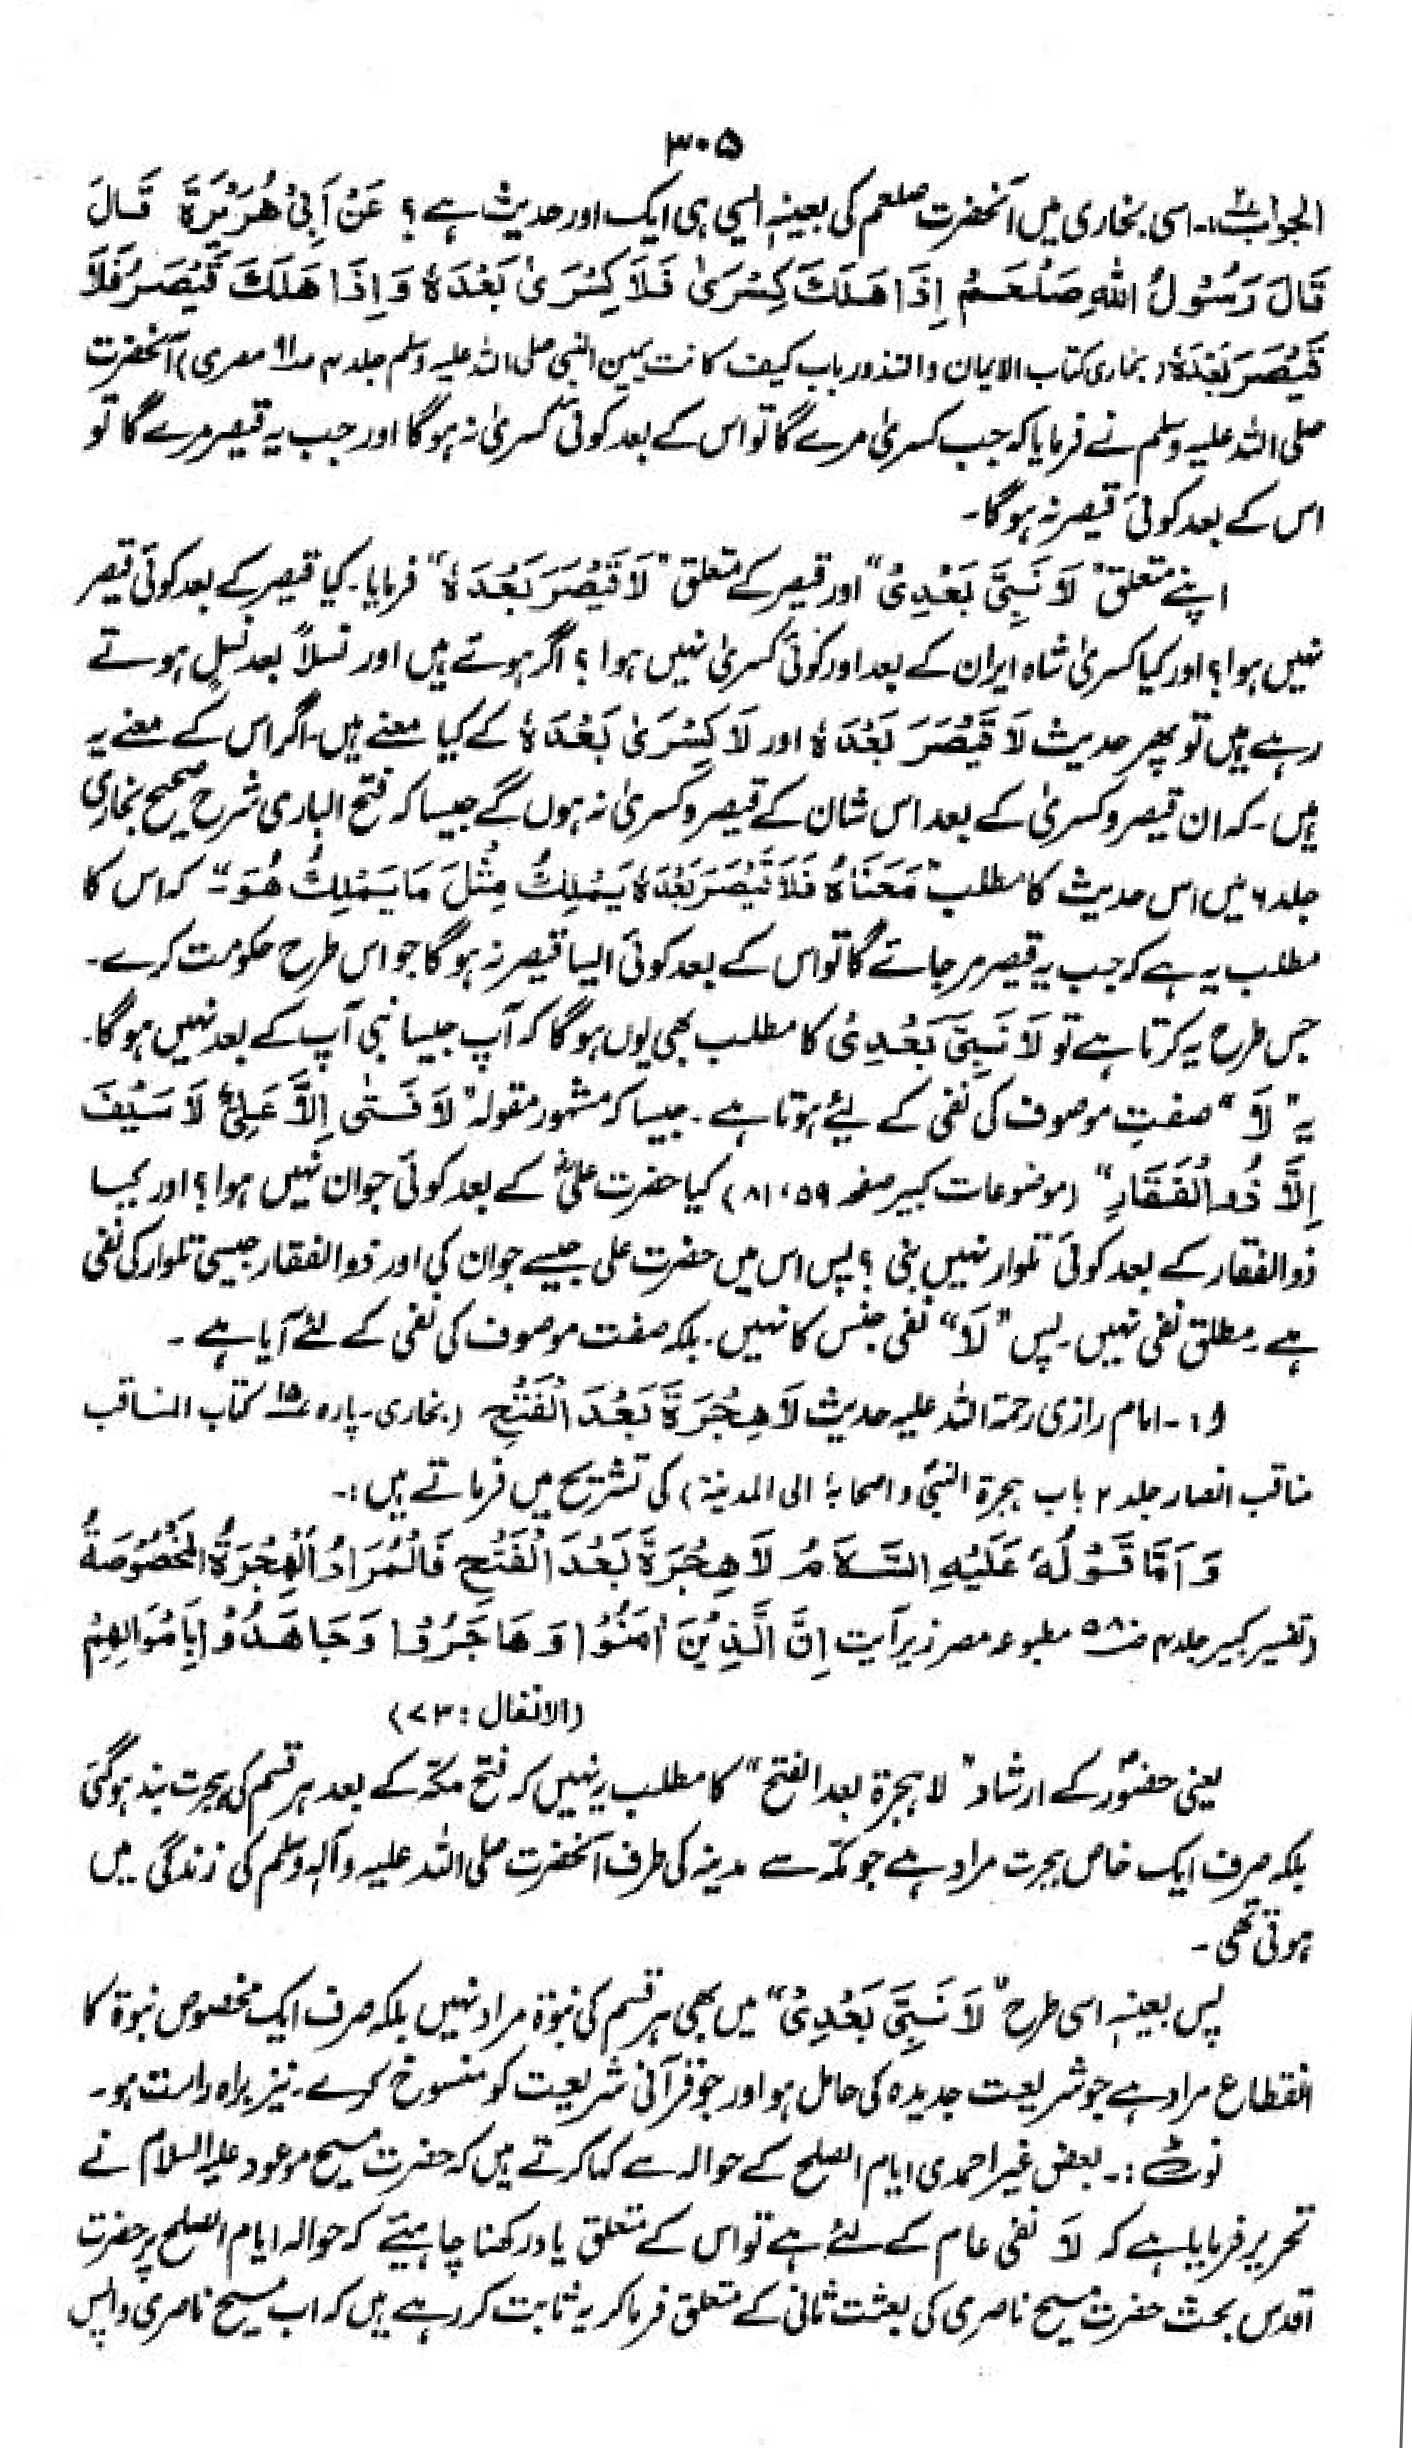 ۳۰۵
الجواب۲:۔ اسی بخاری میں آنحضرت صلعم کی بعینہٖ ایسی ہی ایک اور حدیث ہے؟ عَنْ اَبِیْ هُرَیْرَةَ قَالَ
قَالَ رَسُوْلُ اللهِ صَلْعَمْ اِذَا هَلَكَ كِسْرَىٰ فَلَا كِسْرَىٰ بَعْدَهٗ وَاِذَا هَلَكَ قَيْصَرُ فَلَا
قَيْصَرَ بَعْدَهٗ (بخاری کتاب الایمان والنذور باب کیف کانت یمین النبی صلی اللہ علیہ وسلم جلد ۴ ص۹۱ مصری) آنحضرت
صلی اللہ علیہ وسلم نے فرمایا کہ جب کسریٰ مرے گا تو اس کے بعد کوئی کسریٰ نہ ہوگا اور جب یہ قیصر مرے گا تو
اس کے بعد کوئی قیصر نہ ہوگا۔
اپنے متعلق "لَا نَبِیَّ بَعْدِیْ" اور قیصر کے متعلق "لَا قَیْصَرَ بَعْدَهٗ" فرمایا۔ کیا قیصر کے بعد کوئی قیصر
نہیں ہوا؟ اور کیا کسریٰ شاہ ایران کے بعد اور کوئی کسریٰ نہیں ہوا؟ اگر ہوتے ہیں اور نسلاً بعد نسلٍ ہوتے
رہے ہیں تو پھر حدیث لَا قَیْصَرَ بَعْدَهٗ اور لَا کِسْرَیٰ بَعْدَهٗ کے کیا معنے ہیں۔ اگر اس کے معنے یہ
ہیں۔ کہ ان قیصر و کسریٰ کے بعد اس شان کے قیصر و کسریٰ نہ ہوں گے جیسا کہ فتح الباری شرح صحیح بخاری
جلد ۶ میں اس حدیث کا مطلب "مَعْنَاهُ فَلَا قَیْصَرَ بَعْدَهٗ یَمْلِكُ مِثْلَ مَا یَمْلِكُ هُوَ"۔ کہ اس کا
مطلب یہ ہے کہ جب یہ قیصر مر جائے گا تو اس کے بعد کوئی ایسا قیصر نہ ہوگا جو اس طرح حکومت کرے۔
جس طرح یہ کرتا ہے تو لَا نَبِیَّ بَعْدِیْ کا مطلب بھی یوں ہوگا کہ آپ جیسا نبی آپ کے بعد نہیں ہوگا۔
یہ "لَا" صفتِ موصوف کی نفی کے لئے ہوتا ہے۔ جیسا کہ مشہور مقولہ "لَا فَتٰی اِلَّا عَلِیٌّ لَا سَیْفَ
اِلَّا ذُوالْفَقَارِ" (موضوعات کبیر صفحہ ۵۹، ۸۱) کیا حضرت علیؓ کے بعد کوئی جوان نہیں ہوا؟ اور کیا
ذوالفقار کے بعد کوئی تلوار نہیں بنی؟ پس اس میں حضرت علی جیسے جوان کی اور ذوالفقار جیسی تلوار کی نفی
ہے۔ مطلق نفی نہیں۔ پس "لَا" نفی جنس کا نہیں۔ بلکہ صفت موصوف کی نفی کے لئے آیا ہے۔
۱۔ امام رازی رحمۃ اللہ علیہ حدیث لَا هِجْرَةَ بَعْدَ الْفَتْحِ (بخاری۔ پارہ ۱۵ کتاب المناقب
مناقب انصار جلد ۲ باب ہجرة النبیؐ و اصحابہٗ الی المدینة) کی تشریح میں فرماتے ہیں:۔
وَاَمَّا قَوْلُهٗ عَلَیْهِ السَّلَامُ لَا هِجْرَةَ بَعْدَ الْفَتْحِ فَالْمُرَادُ الْهِجْرَةُ الْمَخْصُوْصَةُ
(تفسیر کبیر جلد ۴ ص۵۸۰ مطبوعہ مصر زیر آیت اِنَّ الَّذِیْنَ اٰمَنُوْا وَهَاجَرُوْا وَجَاهَدُوْا بِاَمْوَالِهِمْ
(الانفال: ۷۳)
یعنی حضورؐ کے ارشاد "لا ہجرة بعد الفتح" کا مطلب یہ نہیں کہ فتح مکّہ کے بعد ہر قسم کی ہجرت بند ہوگئی
بلکہ صرف ایک خاص ہجرت مراد ہے جو مکّہ سے مدینہ کی طرف آنحضرت صلی اللہ علیہ وآلہ وسلم کی زندگی میں
ہوتی تھی۔
پس بعینہٖ اسی طرح "لَا نَبِیَّ بَعْدِیْ" میں بھی ہر قسم کی نبوّة مراد نہیں بلکہ صرف ایک مخصوص نبوّة کا
انقطاع مراد ہے جو شریعت جدیدہ کی حامل ہو اور جو قرآنی شریعت کو منسوخ کرے۔ نیز براہ راست ہو۔
نوٹ:۔ بعض غیر احمدی ایام الصلح کے حوالہ سے کہا کرتے ہیں کہ حضرت مسیح موعود علیہ السلام نے
تحریر فرمایا ہے کہ لَا نفی عام کے لئے ہے تو اس کے متعلق یاد رکھنا چاہیئے کہ حوالہ ایام الصلح پر حضرت
اقدس بحث حضرت مسیح ناصری کی بعثت ثانی کے متعلق فرما کر یہ ثابت کر رہے ہیں کہ اب مسیح ناصری واپس